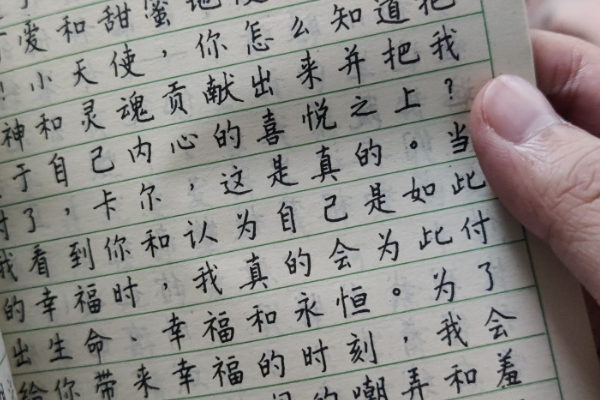 爱和甜蜜地
！小天使，你怎么知道把
神和灵魂贡献出来并把我
于自己内心的喜悦之上？
时了，卡尔，这是真的。当
我看到你和认为自己是如此
的幸福时，我真的会为此付
出生命、幸福和永恒。为了
给你带来幸福的时刻，我会
的嘲弄和羞